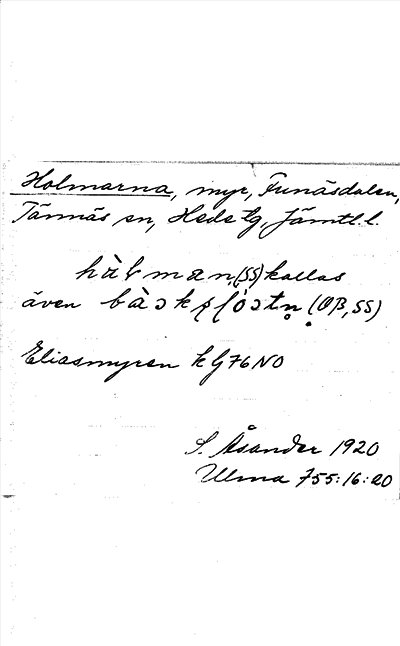 Holmarna, myr, Funäsdalen,
Tännäs sn, Hede tg, Jämtl. l.
(SS) kallas
även (OB, SS)
Eliasmyren k G76NO
S. Åsander 1920
Ulma 755:16:20